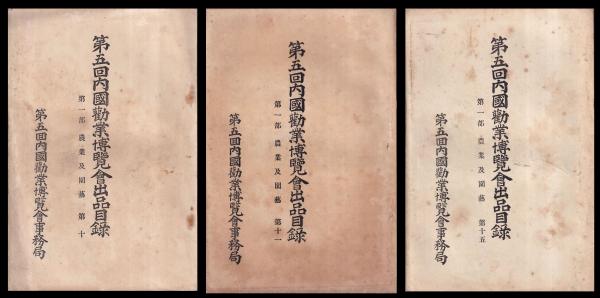 第五回內國勸業博覽會出品目錄
第一部 農業及園藝 第十
第五回內國勸業博覽會事務局
第五回內國勸業博覽會出品目錄
第一部 農業及園藝 第十一
第五回內國勸業博覽會事務局
第五回內國勸業博覽會出品目錄
第一部 農業及園藝 第十五
第五回內國勸業博覽會事務局